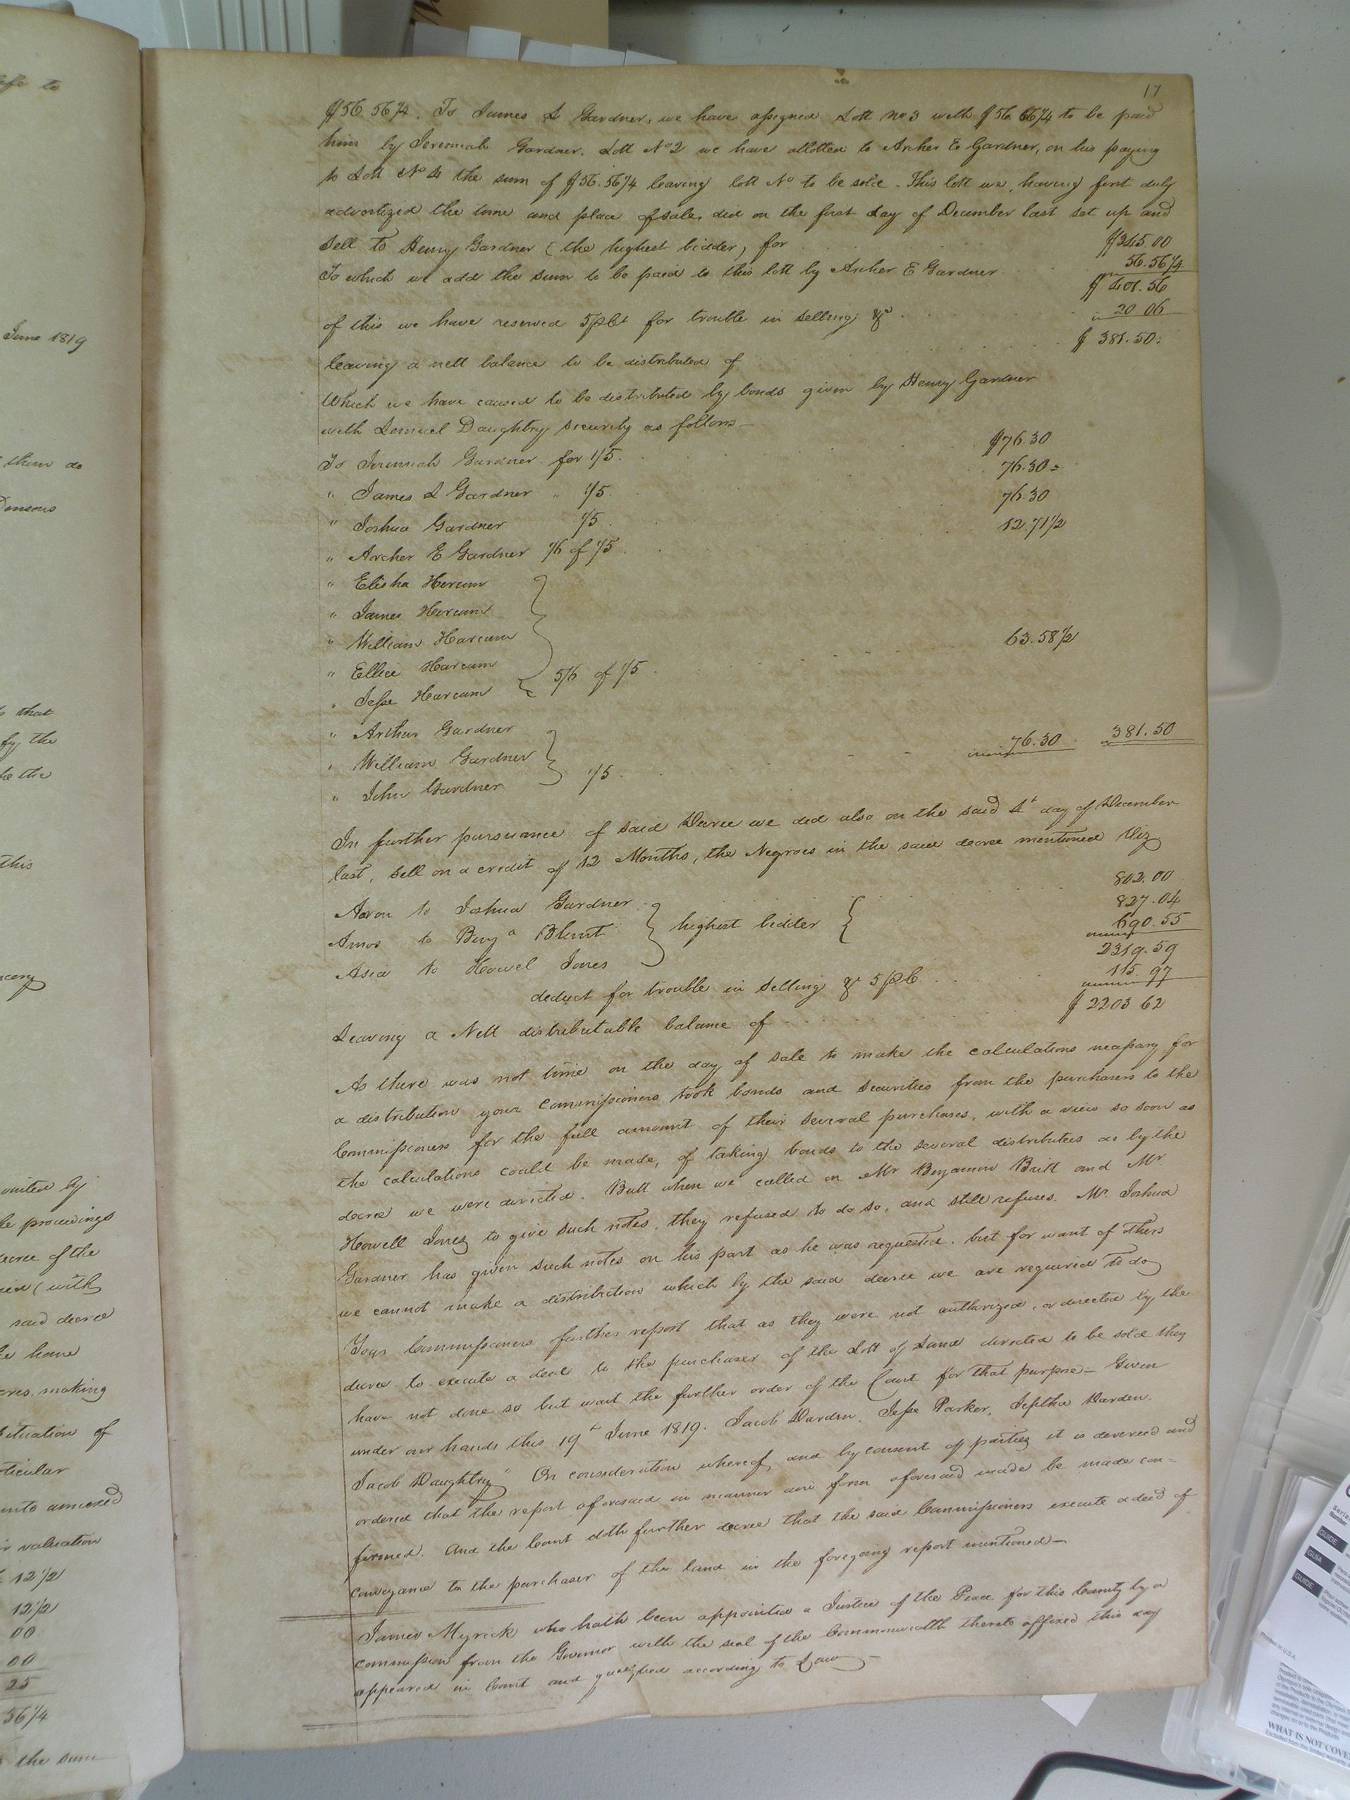 17
$56.56 1/4. To James L Gardner, we have assigned Lott No 3 with $56.56 1/4 to be paid
him by Jeremiah Gardner. Lott No 2 we have allotted to Archer E Gardner, on his paying
to Lott No 4 the sum of $56.56 1/4 leaving lott No to be sold. This lott we, having first duly
advertized the time and place of sale, did on the first day of December last set up and
sell to Henry Gardner (the highest bidder) for $345.00
To which we add the sum to be paid to this lott by Archer E Gardner 56.56 1/4
$401.56
of this we have reserved 5 pct for trouble in selling &c 20 06
leaving a nett balance to be distributed of $381.50
Which we have caused to be distributed by bonds given by Henry Gardner
with Lemuel Daughtry security as follows—
To Jeremiah Gardner for 1/5. $76.30
" James L Gardner " 1/5. 76.30
" Joshua Gardner 1/5. 76.30
" Archer E Gardner 1/6 of 1/5. 12.71 1/2
" Elisha Harcum
" James Harcum
" William Harcum
" Ellice Harcum
" Jesse Harcum 5/6 of 1/5. 63.58 1/2
" Arthur Gardner
" William Gardner
" John Gardner 1/5. 76.30 381.50
In further pursuance of said Decree we did also on the said 1st day of December
last, sell on a credit of 12 Months, the Negroes in the said decree mentioned Viz
Aaron to Joshua Gardner 802.00
Amos to Benja Blunt highest bidder 827.04
Asia to Howel Jones 690.55
2319.59
deduct for trouble in selling &c 5 pct 115.97
Leaving a Nett distributable balance of $2203 62
As there was not time on the day of sale to make the calculations necessary for
a distribution your commissioners took bonds and securities from the purchasers to the
Commissioners for the full amount of their several purchases, with a view so soon as
the calculations could be made, of taking bonds to the several distributees as by the
decree we were directed. But when we called on Mr Benjamin Britt and Mr
Howell Jones to give such notes, they refused to do so, and still refuses. Mr. Joshua
Gardner has given such notes on his part as he was requested. but for want of others
we cannot make a distribution which by the said decree we are required to do
Your Commissioners further report that as they were not authorized, or directed by the
decree to execute a deed to the purchaser of the Lott of Land directed to be sold they
have not done so but wait the further order of the Court for that purpose— Given
under our hands this 19th June 1819. Jacob Darden. Jesse Parker. Jeptha Darden.
Jacob Daughtry" On consideration whereof, and by consent of parties it is decreed and
ordered that the report aforesaid in manner and form aforesaid made be made con-
firmed. And the Court doth further decree that the said Commissioners execute a deed of
conveyance to the purchaser of the land in the foregoing report mentioned—
James Myrick who hath been appointed a Justice of the Peace for this County by a
commission from the Governor with the seal of the Commonwealth thereto affixed this day
appeared in Court and qualified according to Law—
June 1819
them do
that
by the
this
proceedings
decree of the
(with
said decree
making
situation of
ticular
valuation
12 1/2
12 1/2
00
00
25
56 1/4
the sum
GUIDE
GUIDE
WHAT IS NOT COVE